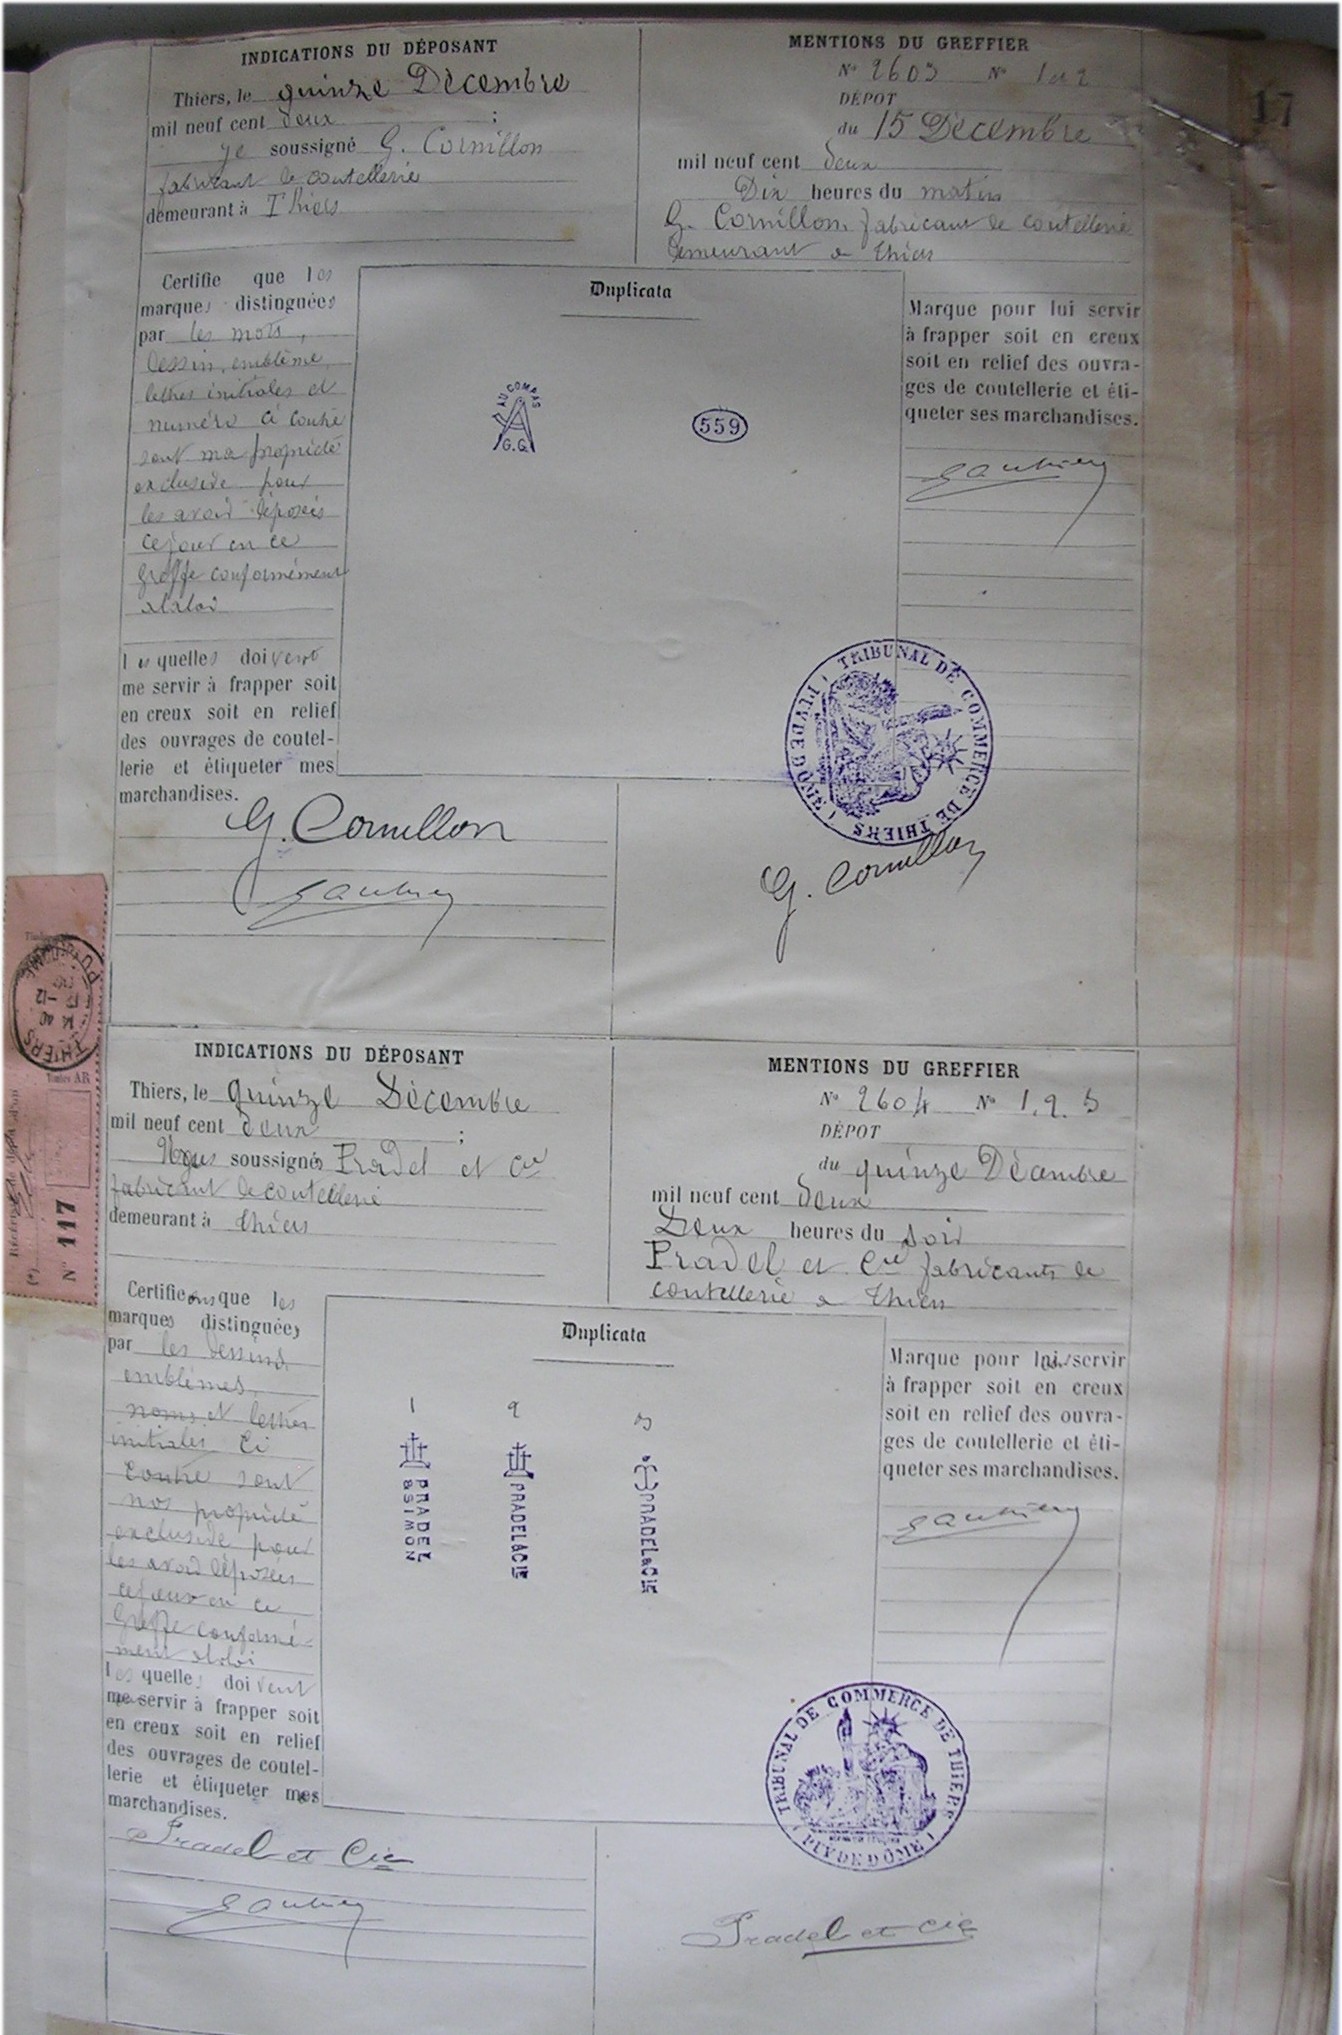 17
INDICATIONS DU DÉPOSANT
Thiers, le quinze Décembre
mil neuf cent deux ;
Je soussigné G. Cornillon
fabricant de coutellerie
demeurant à Thiers
MENTIONS DU GREFFIER
N° 2603 N° 1 et 2
DÉPOT
du 15 Décembre
mil neuf cent deux
Dix heures du matin
G. Cornillon, fabricant de coutellerie
demeurant a Thiers
Certifie que les
marques distinguées
par les mots,
dessin, emblème,
lettres initiales et
numéro ci contre
sont ma propriété
exclusive pour
les avoir déposés
ce jour en ce
Greffe conformément
à la loi
Les quelles doivent
me servir à frapper soit
en creux soit en relief
des ouvrages de coutel-
lerie et étiqueter mes
marchandises.
G. Cornillon
Duplicata
AU COMPAS
G.G.
559
Marque pour lui servir
à frapper soit en creux
soit en relief des ouvra-
ges de coutellerie et éti-
queter ses marchandises.
TRIBUNAL DE COMMERCE DE THIERS
( PUY DE DÔME )
G. Cornillon
THIERS
PUY-DE-DOME
14 40
Timbres AR
N° 117
INDICATIONS DU DÉPOSANT
Thiers, le quinze Décembre
mil neuf cent deux ;
Nous soussignés Pradel et Cie
fabricant de coutellerie
demeurant à Thiers
MENTIONS DU GREFFIER
N° 2604 N° 1. 2. 3
DÉPOT
du quinze Décembre
mil neuf cent deux
Deux heures du soir
Pradel et Cie fabricants de
coutellerie a Thiers
Certifieons que les
marques distinguées
par les dessins,
emblèmes,
noms et lettres
initiales ci
contre sont
nos propriété
exclusive pour
les avoir déposées
ce jour en ce
Greffe conformé-
ment à la loi
Les quelles doivent
me servir à frapper soit
en creux soit en relief
des ouvrages de coutel-
lerie et étiqueter mes
marchandises.
Pradel et Cie
Duplicata
1 2 3
PRADEL
&SIMON
PRADEL&CIE
PRADEL&CIE
Marque pour lui servir
à frapper soit en creux
soit en relief des ouvra-
ges de coutellerie et éti-
queter ses marchandises.
TRIBUNAL DE COMMERCE DE THIERS
( PUY DE DÔME )
Pradel et Cie